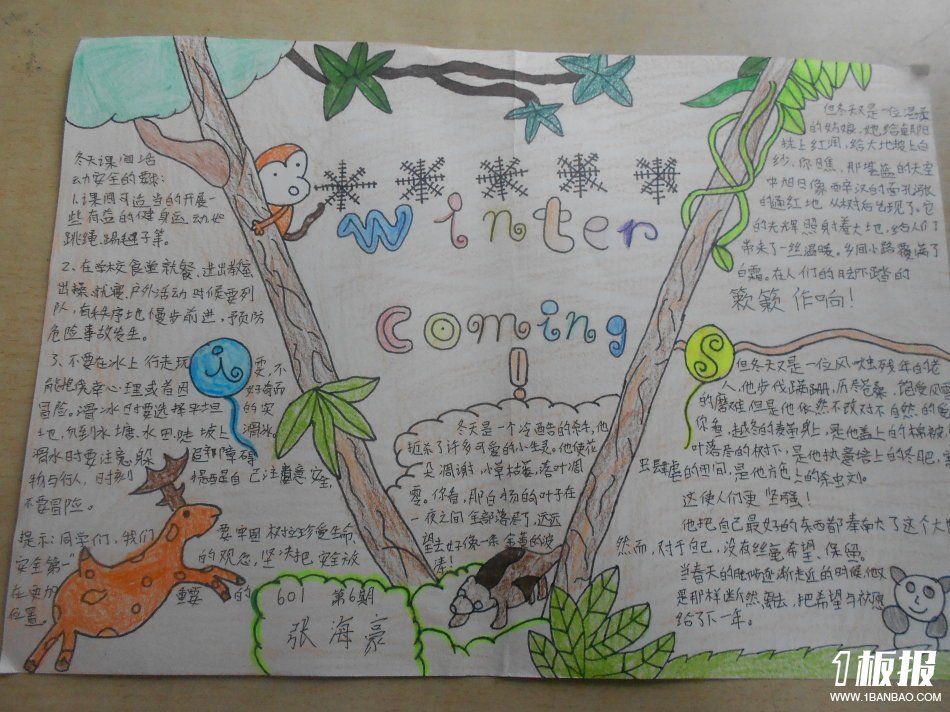 winter
coming
!
i
S
冬天课间活
动安全的要求:
1.课间可适当的开展一
些有益的健身运动如
跳绳、踢毽子等。
2、在学校食堂就餐、进出教室
出操、就寝、户外活动时候要列
队,有秩序地慢步前进,预防
危险事故发生。
3、不要在冰上行走玩 耍,不
能抱侥幸心理或者因 好奇而
冒险。滑冰时要选择平坦 的实
地,勿到水塘、水田、陡坡上 滑冰。
滑冰时要注意躲 避障碍
物与行人,时刻 提醒自己注意安全,
不要冒险。
提示:同学们,我们 要牢固树立珍爱生命,
安全第一 的观念,坚决把,安全放
在更加 重要的
位置。
601 第6期
张海豪
冬天是一个冷酷的杀手,他
扼杀了许多可爱的小生灵。他使花
朵凋谢,小草枯萎,落叶凋
零。你看,那白杨的叶子在
一夜之间全部落尽了,远远
望去好像一条金黄的波
涛!
但冬天又是一位温柔
的姑娘,她给朝阳
抹上红润,给大地披上白
纱。你瞧,那湛蓝的天空
中旭日像
红地从树后出现了。它
的光辉照射着大地,给人们
带来了一丝温暖。乡间小路覆满了
白霜。在人们的脚下踏的
簌簌作响!
但冬天又是一位风烛残年的老
人,他步伐蹒跚,历尽沧桑,饱受风
的磨难但是他依然不改对大自然的
你看,越冬的麦苗身上,是他盖上的棉被
叶落尽的树下,是他执意培上的冬肥,
肆虐的田间,是他洒上的杀虫剂。
这使人们更坚强!
他把自己最好的东西都奉献大了这个大
然而,对于自己,没有丝毫希望、保留。
当春天的脚步逐渐走近的时候,他又
是那样幽然离去,把希望与
给了下一年。
1板报
WWW.1BANBAO.COM